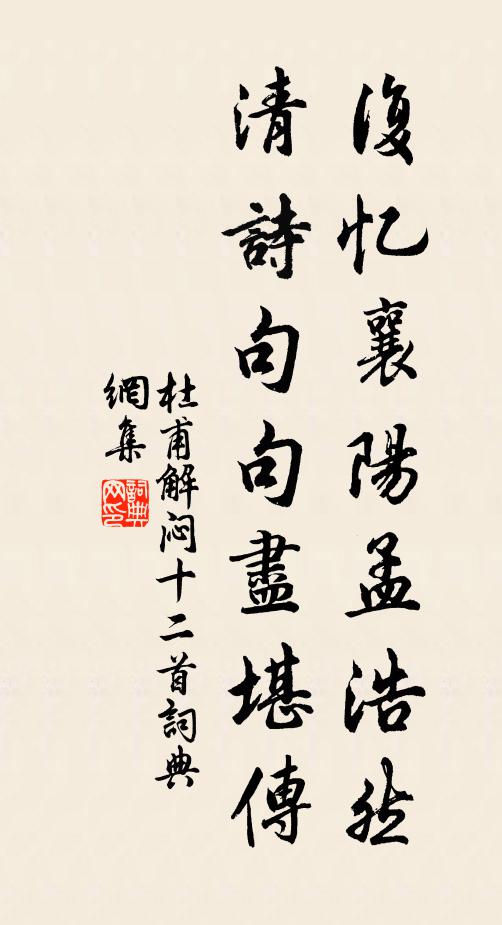 復忆襄陽孟浩然
清詩句句盡堪傳
杜甫解闷十二首詞典
網集
詞典
网印